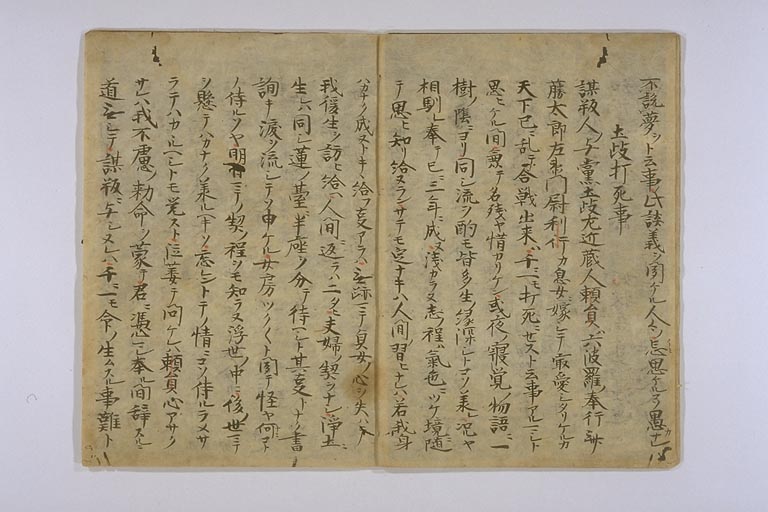 不説夢ヲト云事此談義ヲ聞ケル人ヽ忘思ケルコソ愚ナレ
土岐打死事
謀叛人ノ与黨土岐左近蔵人頼員ハ六波羅奉行斎
藤太郎左衛門尉利行カ息女ニ嫁シテ最愛シタリケルカ
天下已ニ乱テ合戦出来ハ千ニ一モ打死セスト云事アルマシト
思ヒケル間兼テ名残ヤ惜カリケン或夜ノ寝覚ノ物語ニ一
樹ノ陰ニヨリ同シ流ヲ酌モ皆多生ノ縁深シトコソ承ハレ況ヤ
相馴レ奉テ已ニ三年ニ成ヌ浅カラヌ志ノ程ハ氣色ニツケ境随
テ思ヒ知リ給ヌランサテモ定ナキハ人間ノ習ヒナレハ若我身
ハカナク成ヌトキヽ給フ変アラハ無跡マテ貞女ノ心ヲ失ハテ
我後生ヲ訪ヒ給ヘ人間ニ返ラハ二タヒ夫婦ノ契ヲナシ浄土ニ
生レハ同シ蓮ノ臺ニ半座ヲ分テ待ヘシト其変トナク書
詢キ涙ヲ流シテソ申ケル女房ツク〱ト聞テ怪ヤ何コト
ノ侍ルソヤ明日マテノ契ノ程シモ知ラヌ浮世ノ中ニ後世マテ
ヲ懸テハカナク承ヘキソ忘レントテノ情ニコソ侍ルラメサ
ラテハカヽルヘシトモ覚スト泣萎テ問ケレハ頼員心アサク
サレハ我不慮ノ勅命ヲ蒙テ君ニ憑レ奉ル間辞スルニ
道無シテ謀叛ニ与シヌレハ千ニ一モ命ノ生ムスル事難シト